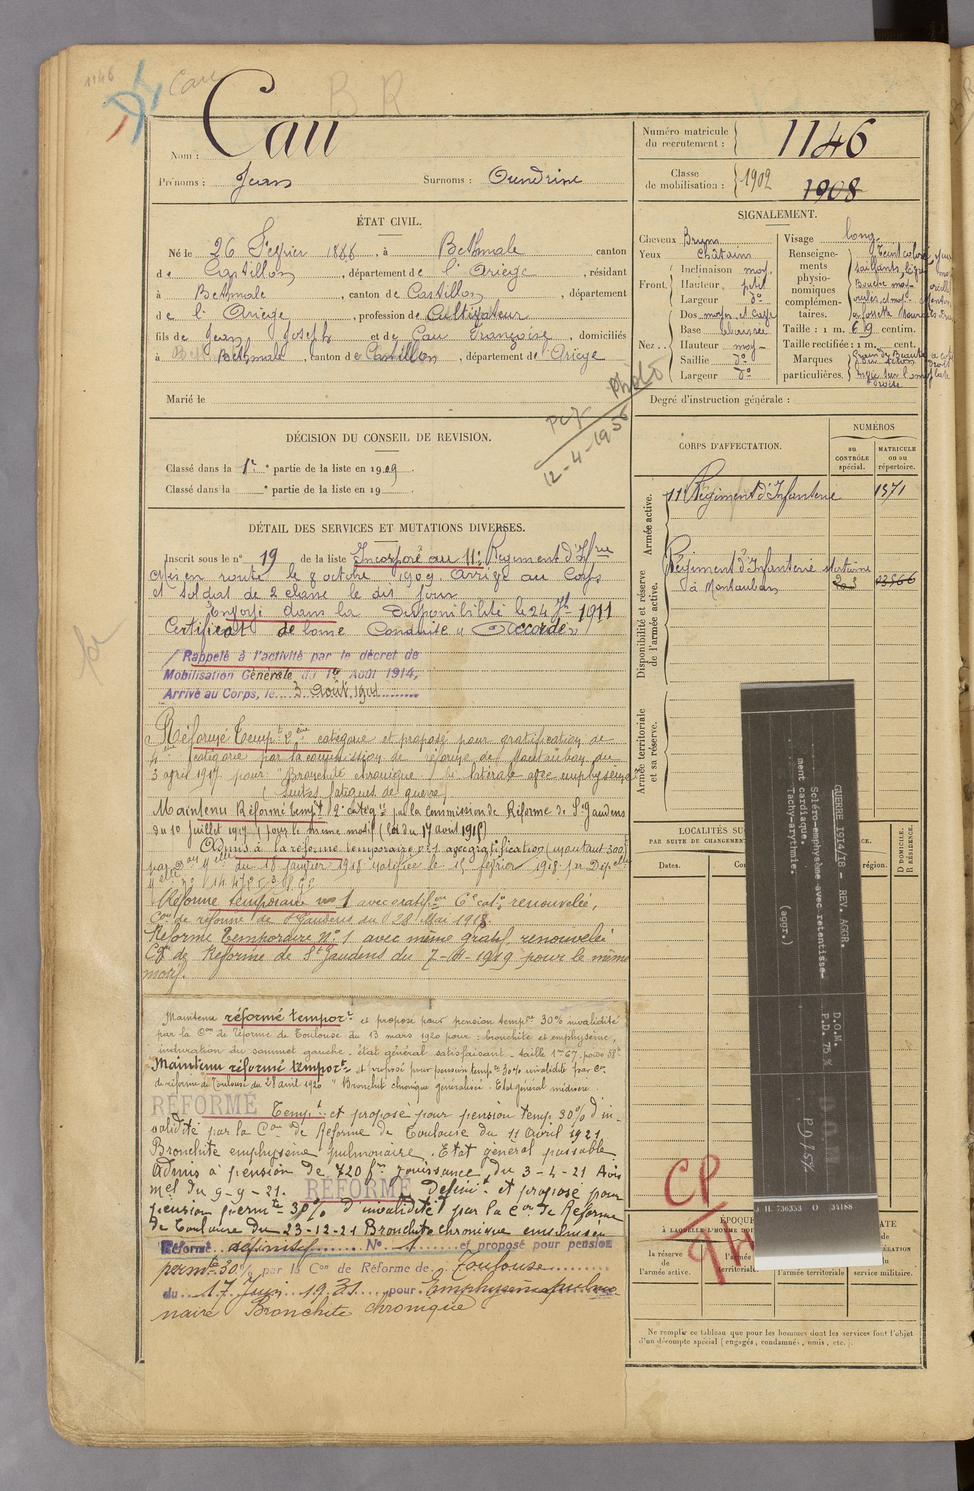 1146
Cau
B R
Nom : Cau
Prénoms : Jean Surnoms : Oundrine
Numéro matricule du recrutement : 1146
Classe de mobilisation : 1902
1908
ÉTAT CIVIL.
Né le 26 Février 1888, à Bethmale canton
de Castillon, département de l'Ariège, résidant
à Bethmale, canton de Castillon, département
de l'Ariège, profession de Cultivateur
fils de Jean Joseph et de Cau Françoise, domiciliés
à Bethmale, canton de Castillon, département de Ariège
Marié le
SIGNALEMENT.
Cheveux Bruns
Yeux Châtains
Front Inclinaison moy.
Hauteur petit
Largeur do
Nez Dos moyen et
Base abaissée
Hauteur moy
Saillie do
Largeur do
Visage long
Renseignements physionomiques complémentaires. Teint coloré
saillants
Bouche moy
Taille : 1 m. 69 centim.
Taille rectifiée : 1 m. cent.
Marques particulières. Grain de Beauté
sur l'omoplate
droite
Degré d'instruction générale :
Photo
12-4-1956
DÉCISION DU CONSEIL DE REVISION.
Classé dans la 1re partie de la liste en 1909.
Classé dans la e partie de la liste en 19
DÉTAIL DES SERVICES ET MUTATIONS DIVERSES.
Inscrit sous le no 19 de la liste Incorporé au 11e Régiment d'Infrie
Mis en route le 8 octobre 1909. Arrivé au Corps
et soldat de 2e classe le dit jour
Envoyé dans la Disponibilité le 24 7bre 1911
Certificat de bonne Conduite "Accordé"
Rappelé à l'activité par le décret de
Mobilisation Générale du 1er Août 1914,
Arrivé au Corps, le 3 Août 1914
Réformé Tempt 2ème catégorie et proposé pour gratification de
4ème catégorie par la commission de réforme de Montauban du
3 avril 1917 pour "Bronchite chronique bi latérale avec emphysème
(Suites fatigues de guerre)
Maintenu Réformé tempt 2e catégie par la Commission de Réforme de St Gaudens
du 10 juillet 1917 (pour le même motif) (loi du 17 août 1915)
Admis à la réforme temporaire no 1 avec gratification (montant 300)
du 18 janvier 1918 ratifiée le 15 février 1918 par Dép
Réforme temporaire no 1 avec gratifon 6e cat. renouvelée,
Con de réforme de St Gaudens du 28 Mai 1918.
Réforme temporaire No 1 avec même gratif. renouvelée
Con de Réforme de St Gaudens du 7-11-1919 pour le même
motif.
Maintenu réformé tempore et proposé pour pension tempre 30% invalidité
par la Con de réforme de Toulouse du 13 mars 1920 pour : bronchite et emphysème,
induration du sommet gauche. état général satisfaisant. taille 1m67, poids 58k
Maintenu réformé tempore et proposé pour pension tempe 30% invalidité par Con
de réforme de Toulouse du 28 avril 1920 "Bronchite chronique généralisée. État général médiocre.
RÉFORMÉ Tempt et proposé pour pension temp. 30% d'in-
validité par la Con de Réforme de Toulouse du 11 Avril 1921
Bronchite emphysème pulmonaire. Etat général passable
Admis à pension de 720 fr jouissance du 3-4-21 Avis
mel du 9-9-21. RÉFORMÉ définit. et proposé pour
pension permte 30% d'invalidité par la Con de Réforme
de Toulouse du 23-12-21 Bronchite chronique emphysème
Réformé définitif No 1 et proposé pour pension
permte 30% par la Con de Réforme de Toulouse
du 17 Juin 1931 pour Emphysème pulmo
naire Bronchite chronique
CORPS D'AFFECTATION.
NUMÉROS
au CONTRÔLE spécial.
MATRICULE ou au répertoire.
Armée active.
11e Régiment d'Infanterie 1371
Disponibilité et réserve de l'armée active.
Régiment d'Infanterie
à Montauban
Armée territoriale et sa réserve.
LOCALITÉS SU
PAR SUITE DE CHANGEMEN
Dates.
Co
région.
D DOMICILE.
R RÉSIDENCE.
GUERRE 1914/18 - REV. AGGR.
D.O.M.
Scléro-emphysème avec retentisse-
ment cardiaque.
P.D. 75 %
Tachy-arythmie.
(aggr.)
J H. 736353 O 34188
CP
ÉPOQUE
À LAQUELLE L'HOMME DOI
la réserve de l'armée active.
l'armée territoriale
l'armée territoriale
service militaire.
Ne remplir ce tableau que pour les hommes dont les services font l'objet
d'un décompte spécial (engagés, condamnés, omis, etc.).